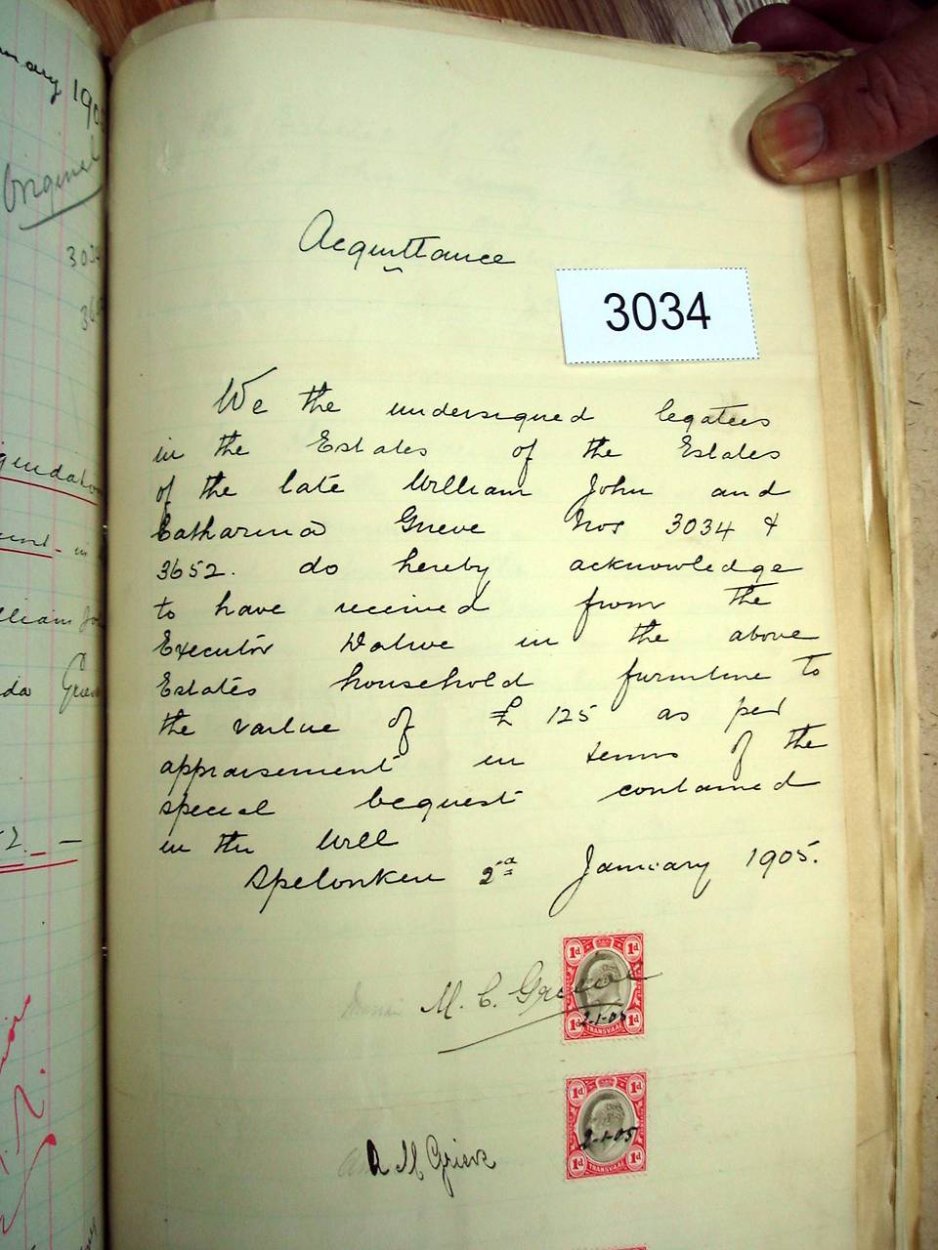 mary 190
Original
303
36
Acquittance
3034
We the undersigned legatees
in the Estates of the Estates
of the late William John and
Catharina Grieve Nos 3034 &
3652. do hereby acknowledge
to have received from the
Executor Dative in the above
Estates household furniture to
the value of £ 125 as per
appraisement in terms of the
special bequest contained
in the Will
Spelonken 2d January 1905.
1d 1d
M. C. Grieve
2-1-05
1d TRANSVAAL 1d
1d 1d
A M Grieve
2-1-05
1d TRANSVAAL 1d